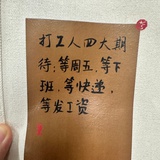 打工人四大期
待:等周五,等下
班,等快递,
等发工资